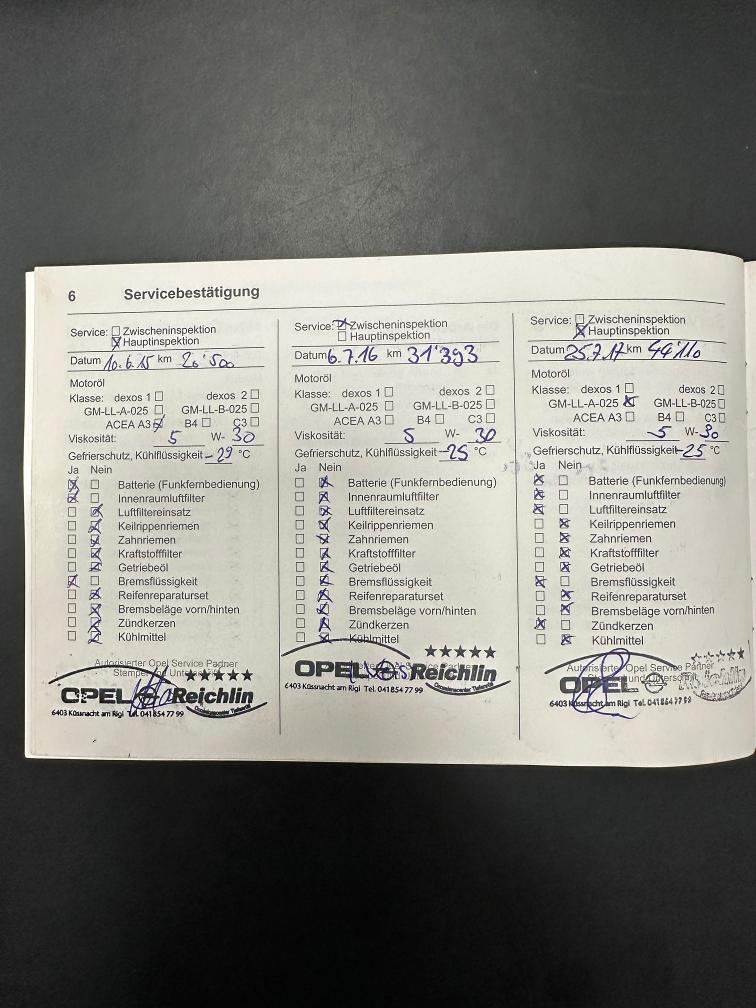 6 Servicebestätigung
Service: ☐ Zwischeninspektion
☒ Hauptinspektion
Datum 10.6.15 km 20'500
Motoröl
Klasse: dexos 1 ☐ dexos 2 ☐
GM-LL-A-025 ☐ GM-LL-B-025 ☐
ACEA A3 ☒ B4 ☐ C3 ☐
Viskosität: 5 W- 30
Gefrierschutz, Kühlflüssigkeit -29 °C
Ja Nein
☒ ☐ Batterie (Funkfernbedienung)
☒ ☐ Innenraumluftfilter
☐ ☒ Luftfiltereinsatz
☐ ☒ Keilrippenriemen
☐ ☒ Zahnriemen
☐ ☒ Kraftstofffilter
☐ ☒ Getriebeöl
☒ ☐ Bremsflüssigkeit
☐ ☒ Reifenreparaturset
☐ ☒ Bremsbeläge vorn/hinten
☐ ☒ Zündkerzen
☐ ☒ Kühlmittel
Autorisierter Opel Service Partner
Stempel und Unterschrift
OPEL Reichlin
6403 Küssnacht am Rigi Tel. 041 854 77 99
Service: ☒ Zwischeninspektion
☐ Hauptinspektion
Datum 6.7.16 km 31'393
Motoröl
Klasse: dexos 1 ☐ dexos 2 ☐
GM-LL-A-025 ☐ GM-LL-B-025 ☐
ACEA A3 ☐ B4 ☐ C3 ☐
Viskosität: 5 W- 30
Gefrierschutz, Kühlflüssigkeit -25 °C
Ja Nein
☐ ☒ Batterie (Funkfernbedienung)
☐ ☒ Innenraumluftfilter
☐ ☒ Luftfiltereinsatz
☐ ☒ Keilrippenriemen
☐ ☒ Zahnriemen
☐ ☒ Kraftstofffilter
☐ ☒ Getriebeöl
☐ ☒ Bremsflüssigkeit
☐ ☒ Reifenreparaturset
☐ ☒ Bremsbeläge vorn/hinten
☐ ☒ Zündkerzen
☐ ☒ Kühlmittel
OPEL Reichlin
6403 Küssnacht am Rigi Tel. 041 854 77 99
Service: ☐ Zwischeninspektion
☒ Hauptinspektion
Datum 25.7.17 km 44'110
Motoröl
Klasse: dexos 1 ☐ dexos 2 ☐
GM-LL-A-025 ☒ GM-LL-B-025 ☐
ACEA A3 ☐ B4 ☐ C3 ☐
Viskosität: 5 W- 30
Gefrierschutz, Kühlflüssigkeit -25 °C
Ja Nein
☒ ☐ Batterie (Funkfernbedienung)
☒ ☐ Innenraumluftfilter
☒ ☐ Luftfiltereinsatz
☐ ☒ Keilrippenriemen
☐ ☒ Zahnriemen
☐ ☒ Kraftstofffilter
☐ ☒ Getriebeöl
☒ ☐ Bremsflüssigkeit
☐ ☒ Reifenreparaturset
☐ ☒ Bremsbeläge vorn/hinten
☒ ☐ Zündkerzen
☐ ☒ Kühlmittel
Autorisierter Opel Service Partner
Stempel und Unterschrift
OPEL
6403 Küssnacht am Rigi Tel. 041 854 77 99